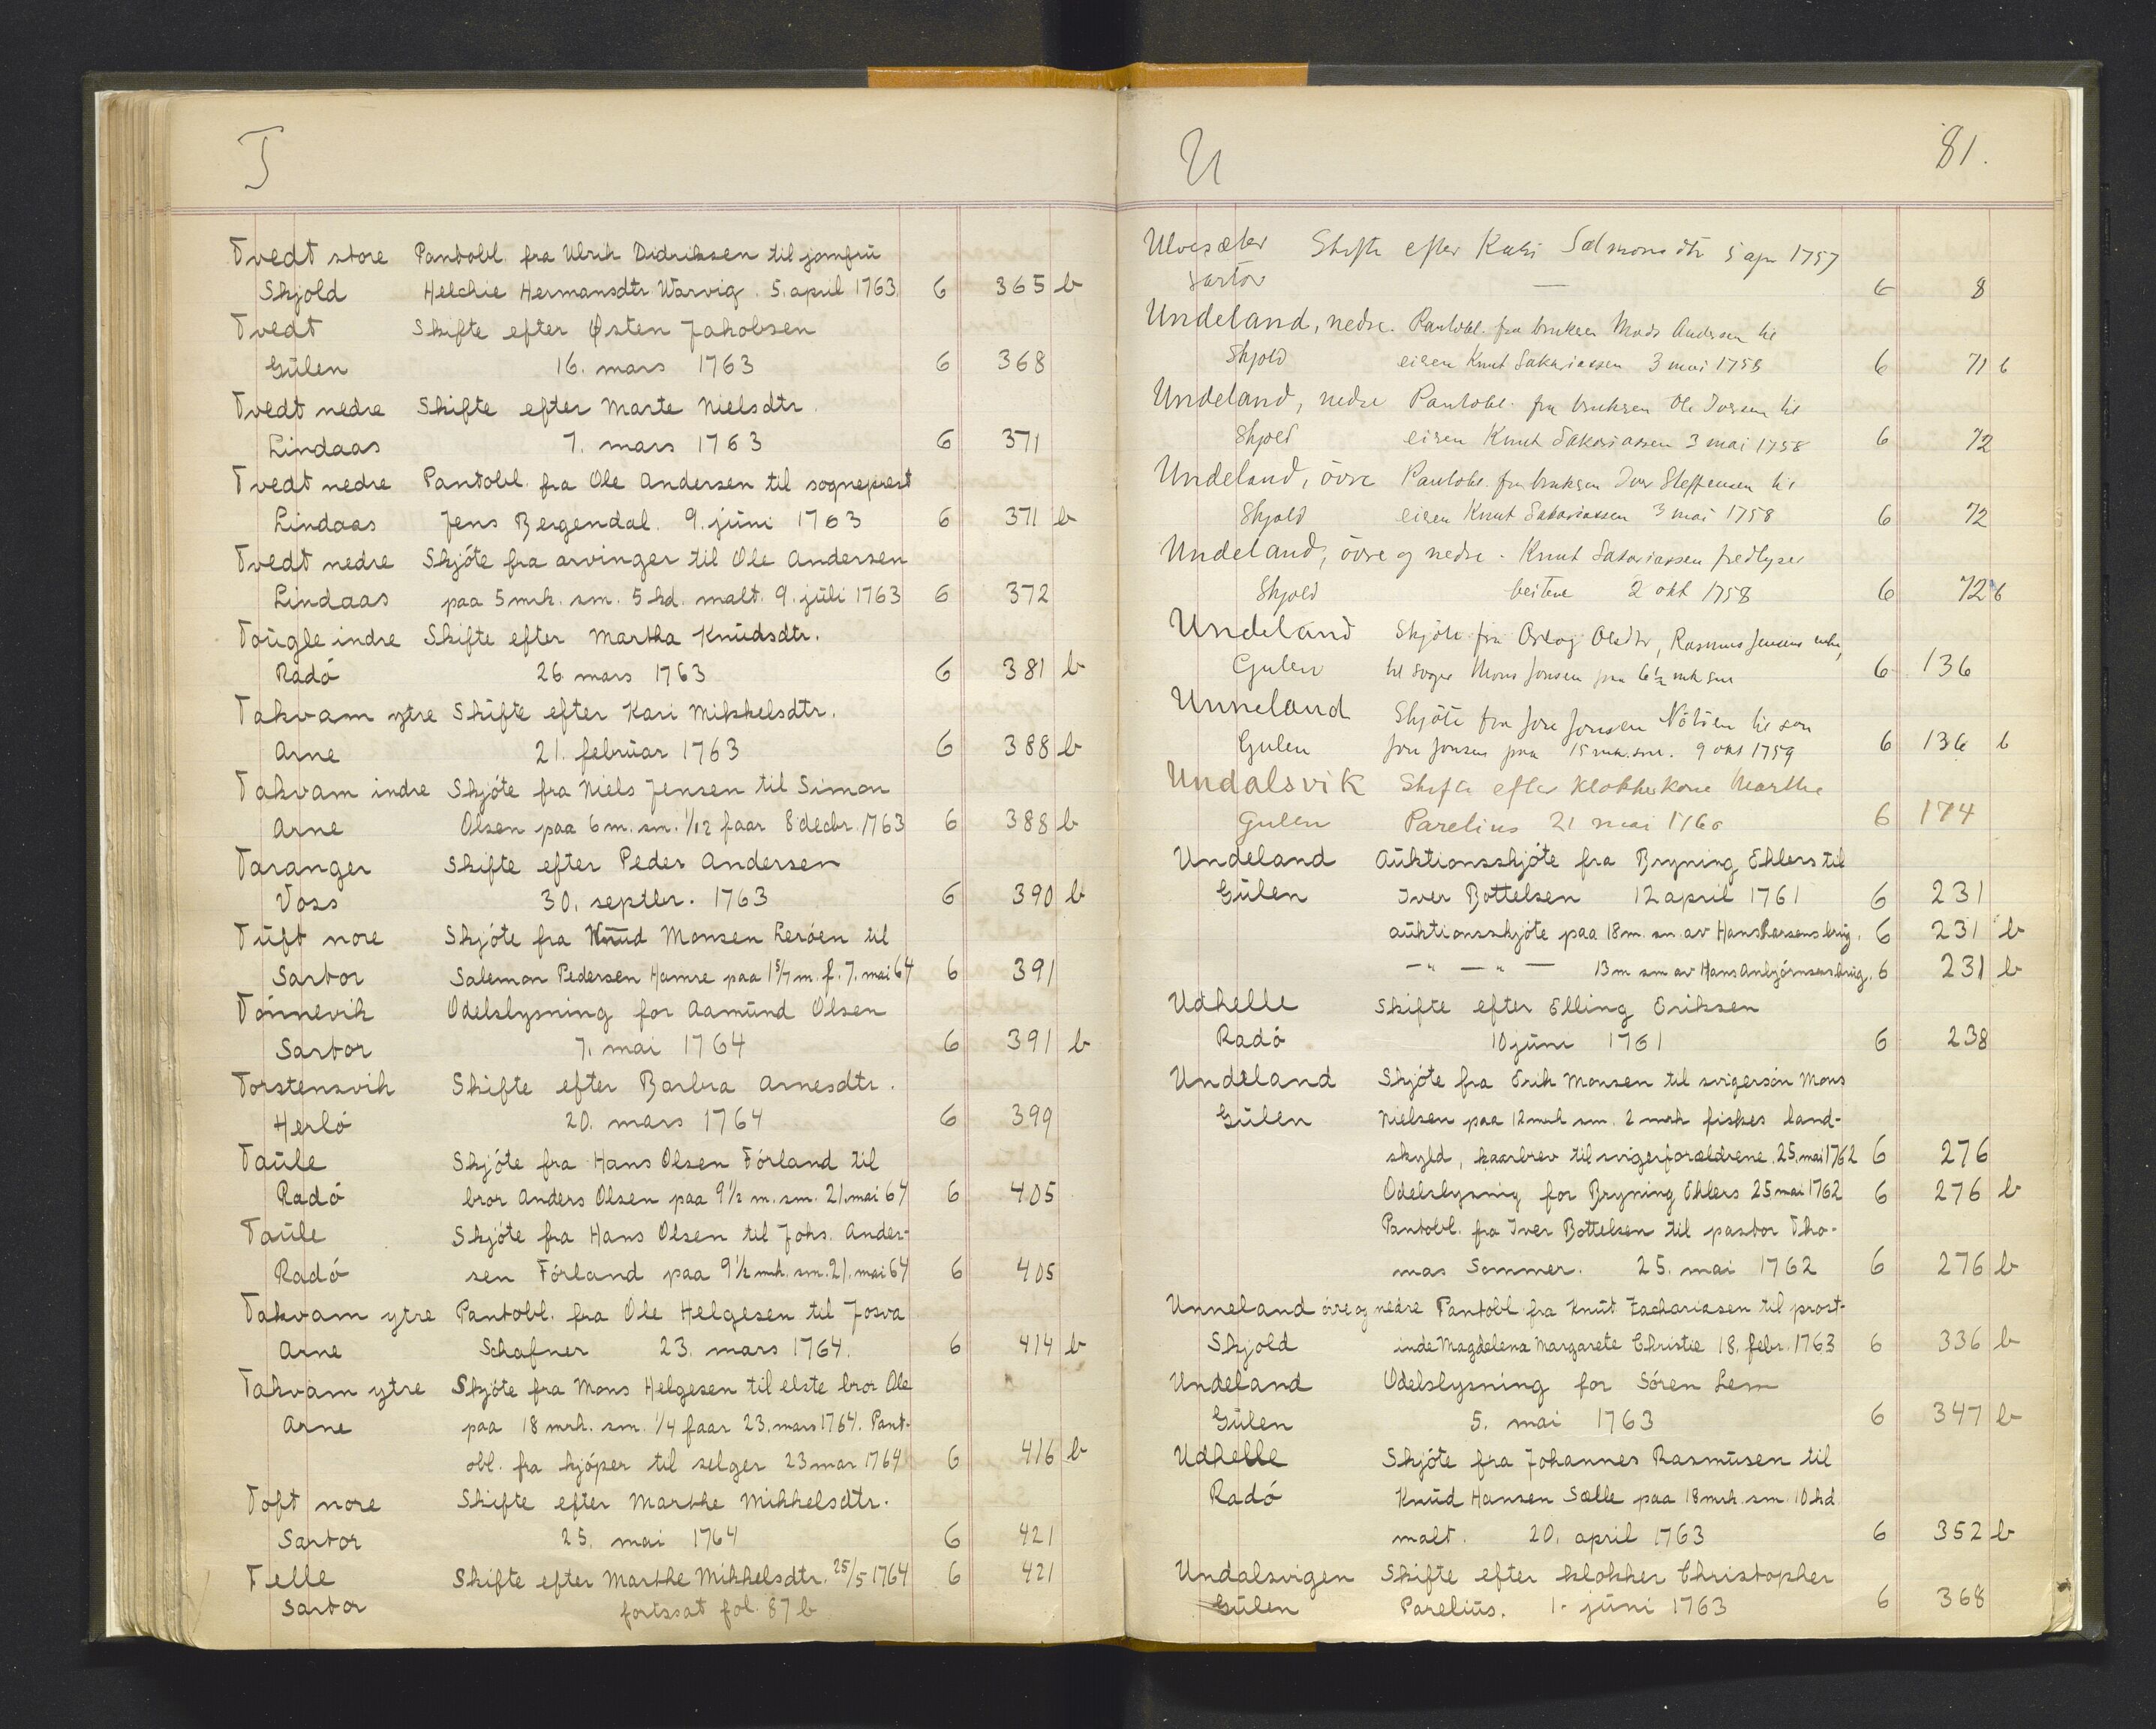 T
Tvedt store Pantobl. fra Ulrik Didriksen til jomfru
Skjold Helchie Hermansdtr. Warvig. 5. april 1763 6 365 b
Tvedt Skifte efter Østen Jakobsen
Gulen 16. mars 1763 6 368
Tvedt nedre Skifte efter Marte Nielsdtr.
Lindaas 7. mars 1763 6 371
Tvedt nedre Pantobl. fra Ole Andersen til sogneprest
Lindaas Jens Bergendal. 9. juni 1763 6 371 b
Tvedt nedre Skjöte fra arvinger til Ole Andersen
Lindaas paa 5 mrk. sm. 5 kd. malt. 9. juli 1763 6 372
Tougle indre Skifte efter Martha Knudsdtr.
Radö 26 mars 1763 6 381 b
Takvam ytre Skifte efter Kari Mikkelsdtr.
Arne 21. februar 1763 6 388 b
Takvam indre Skjöte fra Niels Jensen til Simon
Arne Olsen paa 6 m. sm. 1/12 faar 8 decbr. 1763 6 388 b
Taranger Skifte efter Peder Andersen
Voss 30. septbr. 1763 6 390 b
Tuft nore Skjöte fra Knud Monsen Leröen til
Sartor Salemon Pedersen Hamre paa 1 5/7 m. f. 7. mai 64 6 391
Tönnevik Odelslysning for Aamund Olsen
Sartor 7. mai 1764 6 391 b
Torstensvik Skifte efter Barbra Arnesdtr.
Herlö 20. mars 1764 6 399
Taule Skjöte fra Hans Olsen Förland til
Radö bror Anders Olsen paa 9 1/2 m. sm. 21. mai 64 6 405
Taule Skjöte fra Hans Olsen til Johs. Ander-
Radö sen Förland paa 9 1/2 mrk. sm. 21. mai 64 6 405
Takvam ytre Pantobl. fra Ole Helgesen til Josva
Arne Schafner 23. mars 1764. 6 414 b
Takvam ytre Skjöte fra Mons Helgesen til elste bror Ole
Arne paa 18 mrk. sm. 1/4 faar 23. mars 1764. Pant-
obl. fra kjöper til selger 23 mar 1764 6 416 b
Toft nore Skifte efter Marthe Mikkelsdtr.
Sartor 25. mai 1764 6 421
Telle Skifte efter Marthe Mikkelsdtr. 25/5 1764 6 421
Sartor fortssat fol. 87 b
U 81.
Ulvesæter Skifte efter Kari Salmonsdtr 5 apr 1757
Sartor — 6 8
Undeland, nedre. Pantobl. fra bruksen Mads Andersen til
Skjold eieren Knut Sakariassen 3 mai 1758 6 71 b
Undeland, nedre Pantobl. fra bruksen Ole Iversen til
Skjold eieren Knut Sakariassen 3 mai 1758 6 72
Undeland, övre Pantobl. fra bruksen Iver Steffensen til
Skjold eieren Knut Sakariassen 3 mai 1758 6 72
Undeland, övre og nedre. Knut Sakariassen fredlyser
Skjold beitene 2 okt 1758 6 72 b
Undeland Skjöte fra Oslaug Olsdtr, Rasmus Jensens enke,
Gulen til svoger Mons Jonsen paa 6 1/2 mk sm 6 136
Unneland Skjöte fra Jon Jonsen Nötsen til sön
Gulen Jon Jonsen paa 15 mk. sm. 9 okt 1759 6 136 b
Undalsvik Skifte efter klokkerkone Marthe
Gulen Parelius 21 mai 1760 6 174
Undeland Auktionsskjöte fra Bryning Ehlers til
Gulen Iver Bottelsen 12 april 1761 6 231
auktionsskjöte paa 18 m. sm. av Hans Larsens brug. 6 231 b
—"— —"— 13 m sm av Hans Anbjörnsens brug. 6 231 b
Udhelle Skifte efter Elling Eriksen
Radö 10 juni 1761 6 238
Undeland Skjöte fra Erik Monsen til svigersön Mons
Gulen Nielsen paa 12 mrk sm. 2 mrk fiskes land-
skyld, kaarbrev til svigerforældrene. 25. mai 1762 6 276
Odelslysning for Bryning Ehlers 25 mai 1762 6 276 b
Pantobl. fra Iver Bottelsen til pastor Tho-
mas Sommer. 25. mai 1762 6 276 b
Unneland övre og nedre Pantobl fra Knut Zachariasen til prost-
Skjold inde Magdelena Margarete Christie 18. febr. 1763 6 336 b
Undeland Odelslysning for Sören Lem
Gulen 5. mai 1763 6 347 b
Udhelle Skjöte fra Johannes Rasmusen til
Radö Knud Hansen Sælle paa 18 mrk. sm. 10 kd
malt. 20. april 1763 6 352 b
Undalsvigen Skifte efter klokker Christopher
Gulen Parelius. 1. juni 1763 6 368